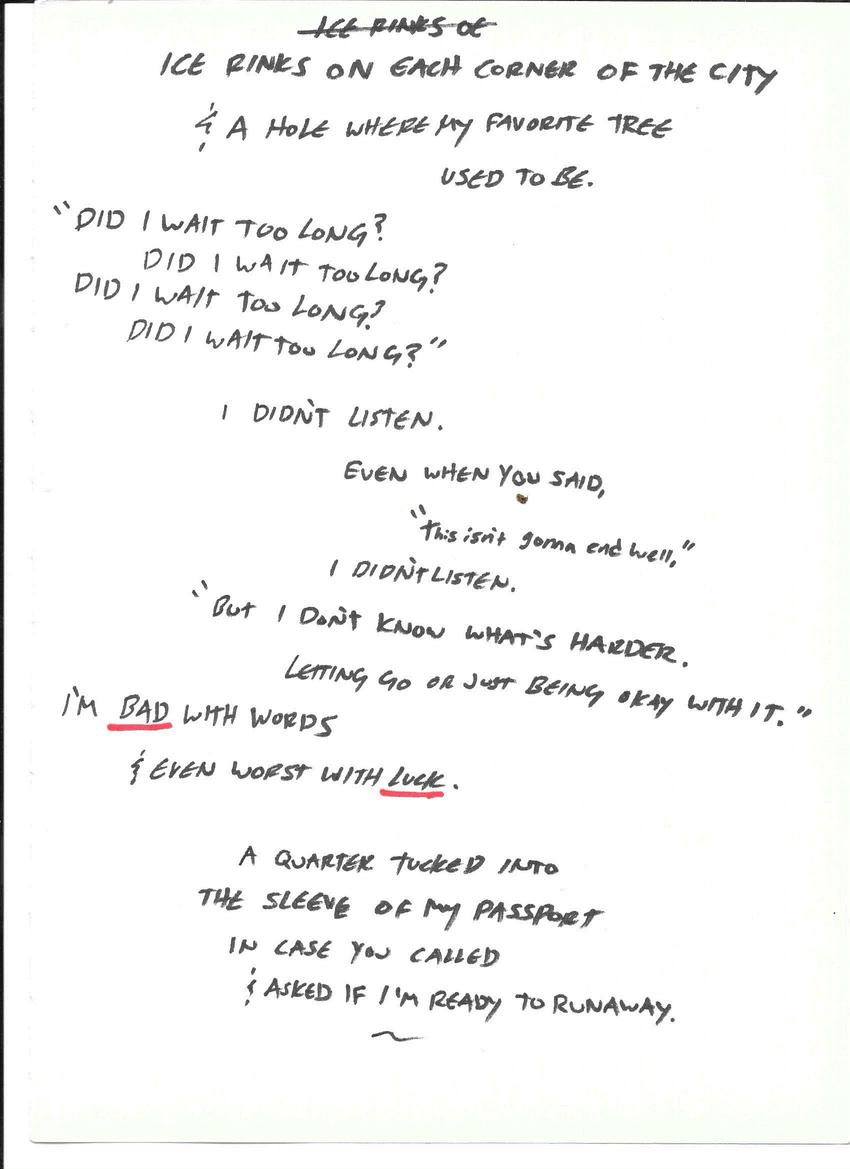 ICE RINKS OE
ICE RINKS ON EACH CORNER OF THE CITY
& A HOLE WHERE MY FAVORITE TREE
USED TO BE.
"DID I WAIT TOO LONG?
DID I WAIT TOO LONG?
DID I WAIT TOO LONG?
DID I WAIT TOO LONG?"
I DIDN'T LISTEN.
EVEN WHEN YOU SAID,
"This isn't gonna end well,"
I DIDN'T LISTEN.
"BUT I DON'T KNOW WHAT'S HARDER.
LETTING GO OR JUST BEING OKAY WITH IT."
I'M BAD WITH WORDS
& EVEN WORST WITH LUCK.
A QUARTER TUCKED INTO
THE SLEEVE OF MY PASSPORT
IN CASE YOU CALLED
& ASKED IF I'M READY TO RUNAWAY.
~